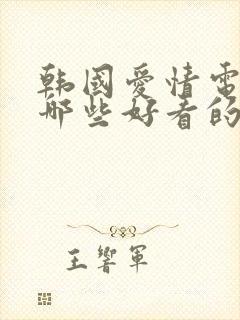 韩國爱情電
哪些好看的
王響軍